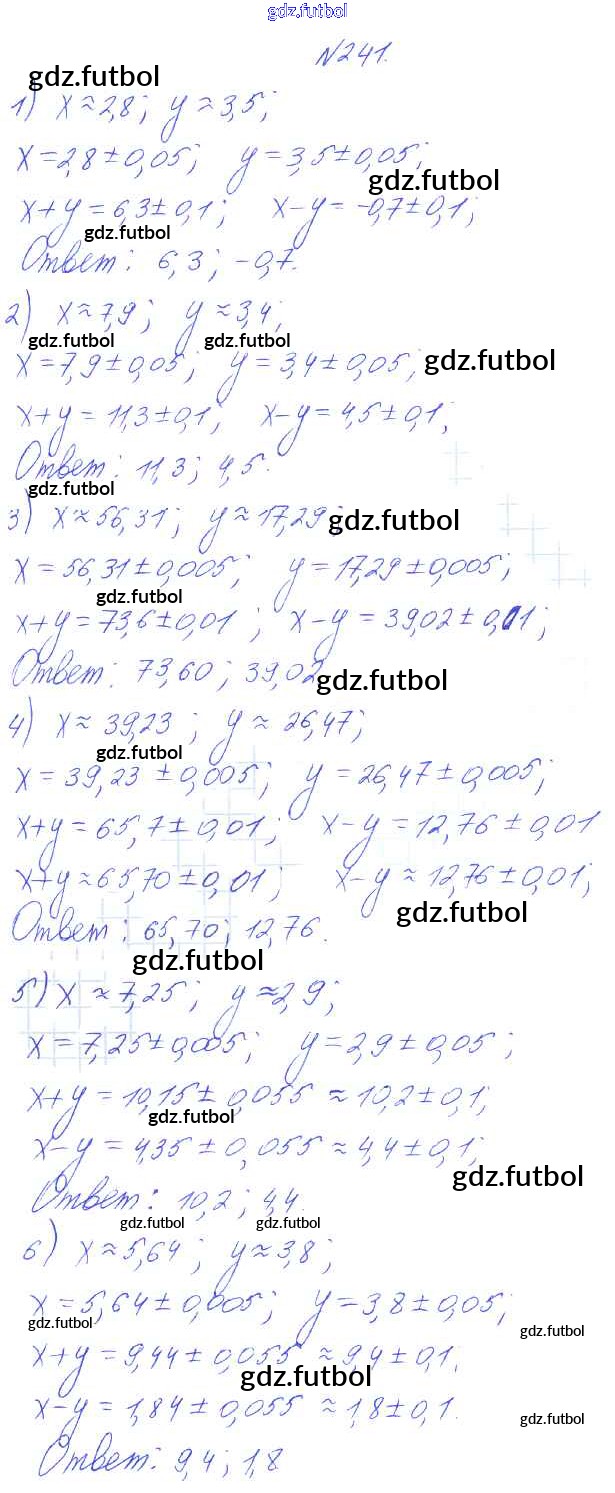 gdz.futbol
№241.
gdz.futbol
1) x≈2,8; y≈3,5;
x=2,8±0,05; y=3,5±0,05;
gdz.futbol
x+y=6,3±0,1; x-y=-0,7±0,1;
gdz.futbol
Ответ: 6,3; -0,7.
2) x≈7,9; y≈3,4;
gdz.futbol gdz.futbol
x=7,9±0,05; y=3,4±0,05;
gdz.futbol
x+y=11,3±0,1; x-y=4,5±0,1;
Ответ: 11,3; 4,5.
gdz.futbol
3) x≈56,31; y≈17,29;
gdz.futbol
x=56,31±0,005; y=17,29±0,005;
gdz.futbol
x+y=73,6±0,01; x-y=39,02±0,01;
Ответ: 73,60; 39,02
gdz.futbol
4) x≈39,23; y≈26,47;
gdz.futbol
x=39,23±0,005; y=26,47±0,005;
x+y=65,7±0,01; x-y=12,76±0,01
x+y≈65,70±0,01; x-y≈12,76±0,01;
gdz.futbol
Ответ: 65,70; 12,76.
gdz.futbol
5) x≈7,25; y≈2,9;
x=7,25±0,005; y=2,9±0,05;
x+y=10,15±0,055≈10,2±0,1;
gdz.futbol
x-y=4,35±0,055≈4,4±0,1;
gdz.futbol
Ответ: 10,2; 4,4.
gdz.futbol gdz.futbol
6) x≈5,64; y≈3,8;
x=5,64±0,005; y=3,8±0,05;
gdz.futbol
gdz.futbol
x+y=9,44±0,055≈9,4±0,1.
gdz.futbol
x-y=1,84±0,055≈1,8±0,1.
gdz.futbol
Ответ: 9,4; 1,8